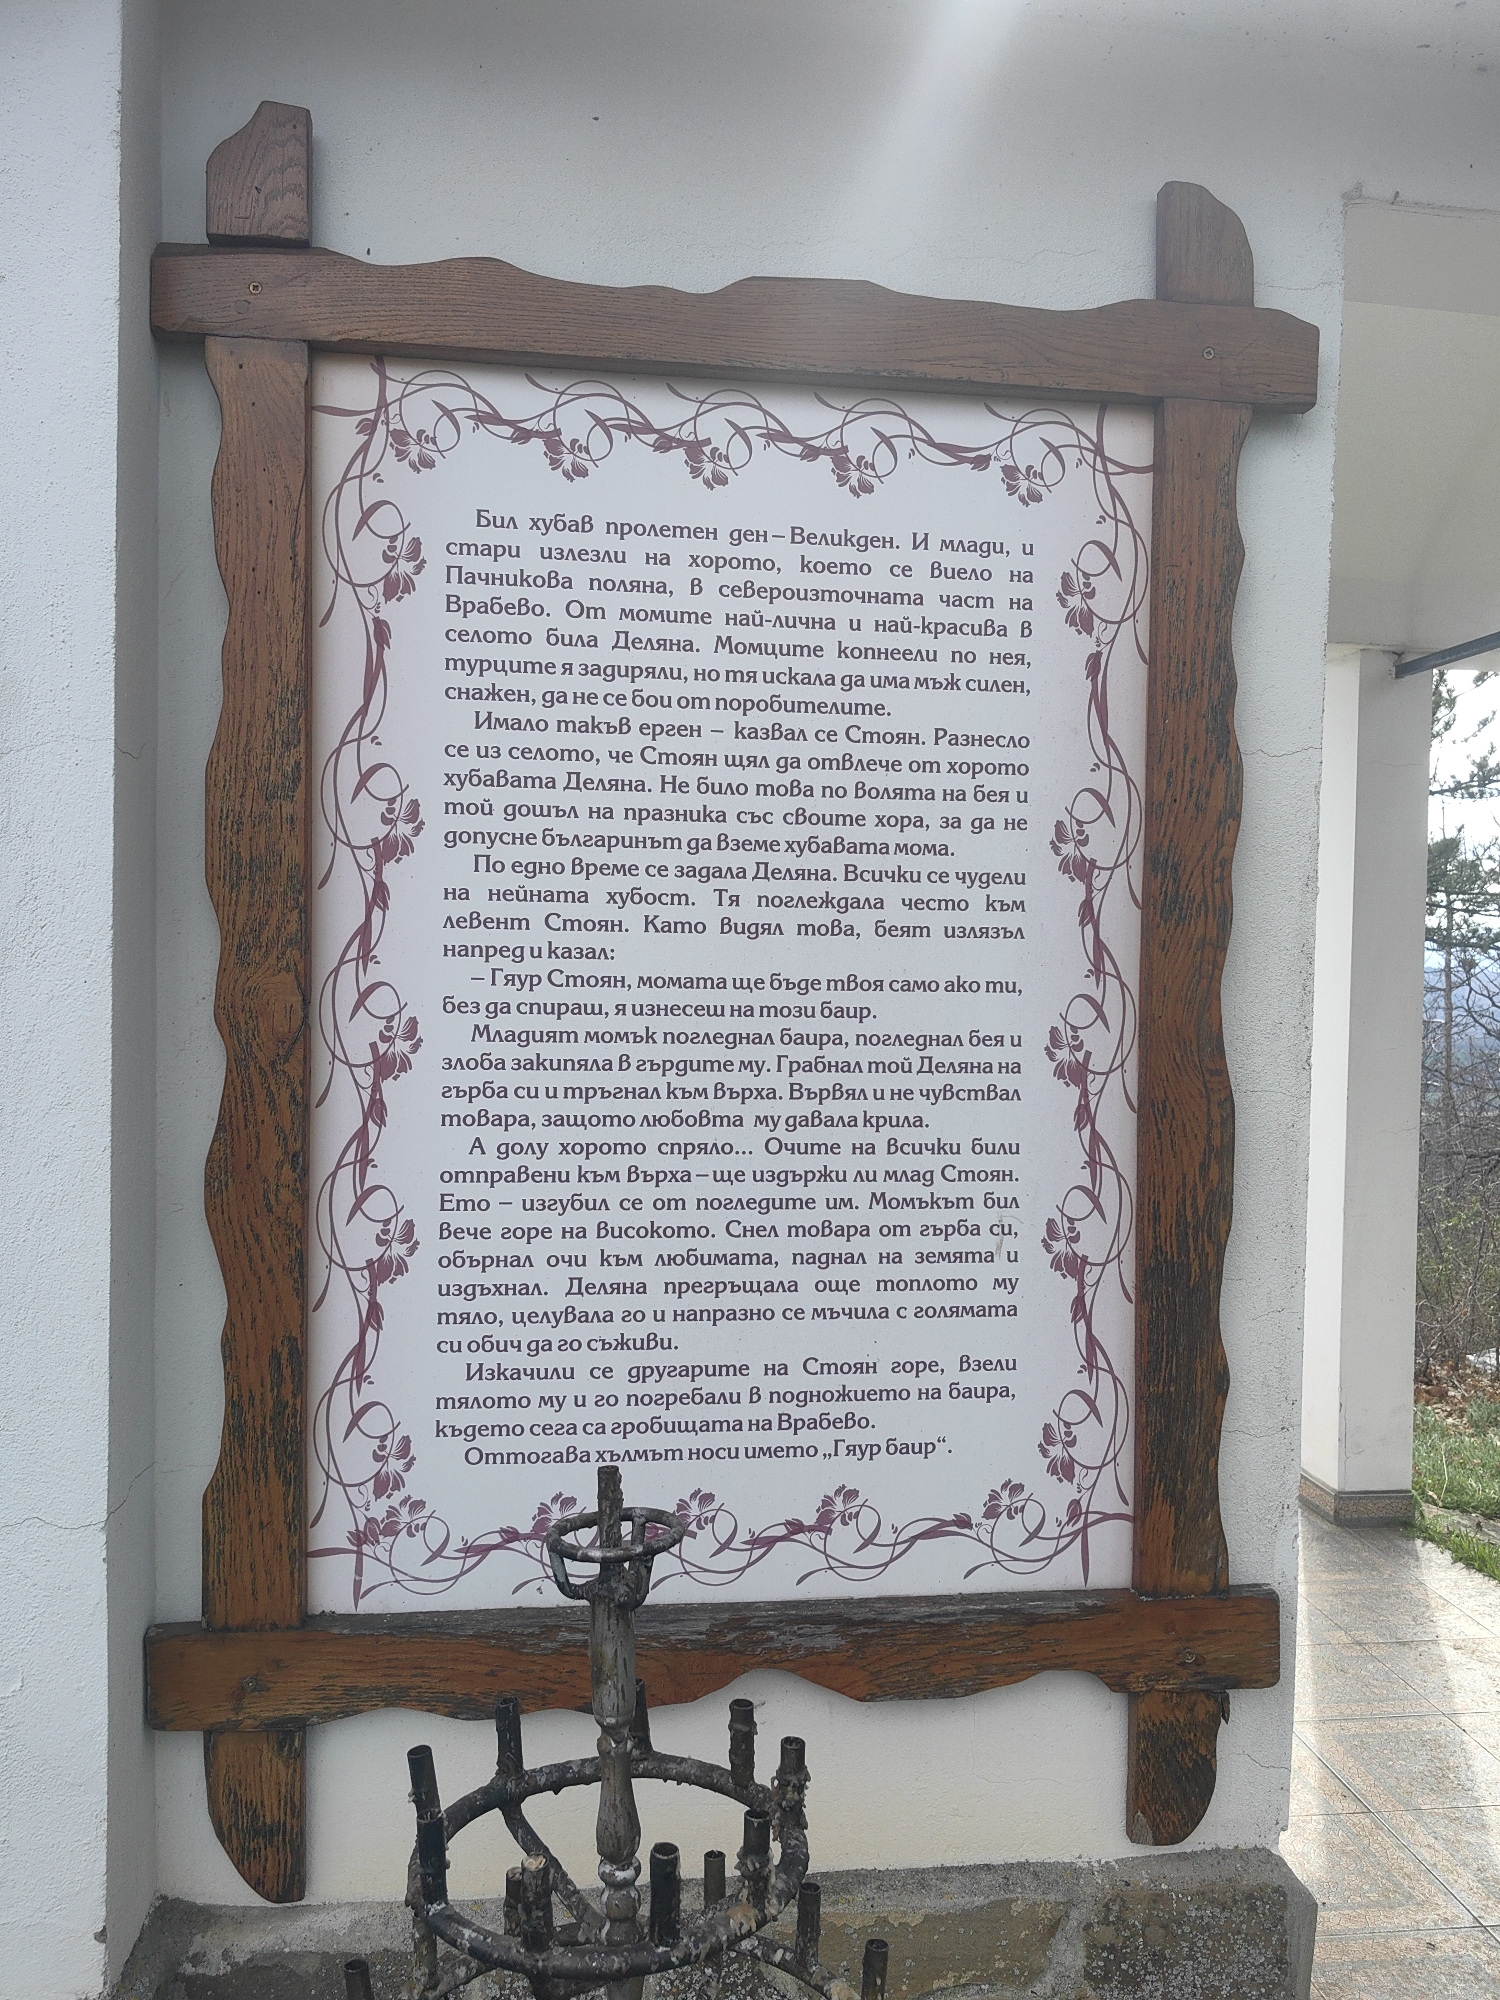 Бил хубав пролетен ден – Великден. И млади, и
стари излезли на хорото, което се виело на
Пачникова поляна, в североизточната част на
Врабево. От момите най-лична и най-красива в
селото била Деляна. Момците копнеели по нея,
турците я задиряли, но тя искала да има мъж силен,
снажен, да не се бои от поробителите.
Имало такъв ерген – казвал се Стоян. Разнесло
се из селото, че Стоян щял да отвлече от хорото
хубавата Деляна. Не било това по волята на бея и
той дошъл на празника със своите хора, за да не
допусне българинът да вземе хубавата мома.
По едно време се задала Деляна. Всички се чудели
на нейната хубост. Тя поглеждала често към
левент Стоян. Като видял това, беят излязъл
напред и казал:
– Гяур Стоян, момата ще бъде твоя само ако ти,
без да спираш, я изнесеш на този баир.
Младият момък погледнал баира, погледнал бея и
злоба закипяла в гърдите му. Грабнал той Деляна на
гърба си и тръгнал към върха. Вървял и не чувствал
товара, защото любовта му давала крила.
А долу хорото спряло... Очите на всички били
отправени към върха – ще издържи ли млад Стоян.
Ето – изгубил се от погледите им. Момъкът бил
вече горе на високото. Снел товара от гърба си,
обърнал очи към любимата, паднал на земята и
издъхнал. Деляна прегръщала още топлото му
тяло, целувала го и напразно се мъчила с голямата
си обич да го съживи.
Изкачили се другарите на Стоян горе, взели
тялото му и го погребали в подножието на баира,
където сега са гробищата на Врабево.
Оттогава хълмът носи името „Гяур баир“.